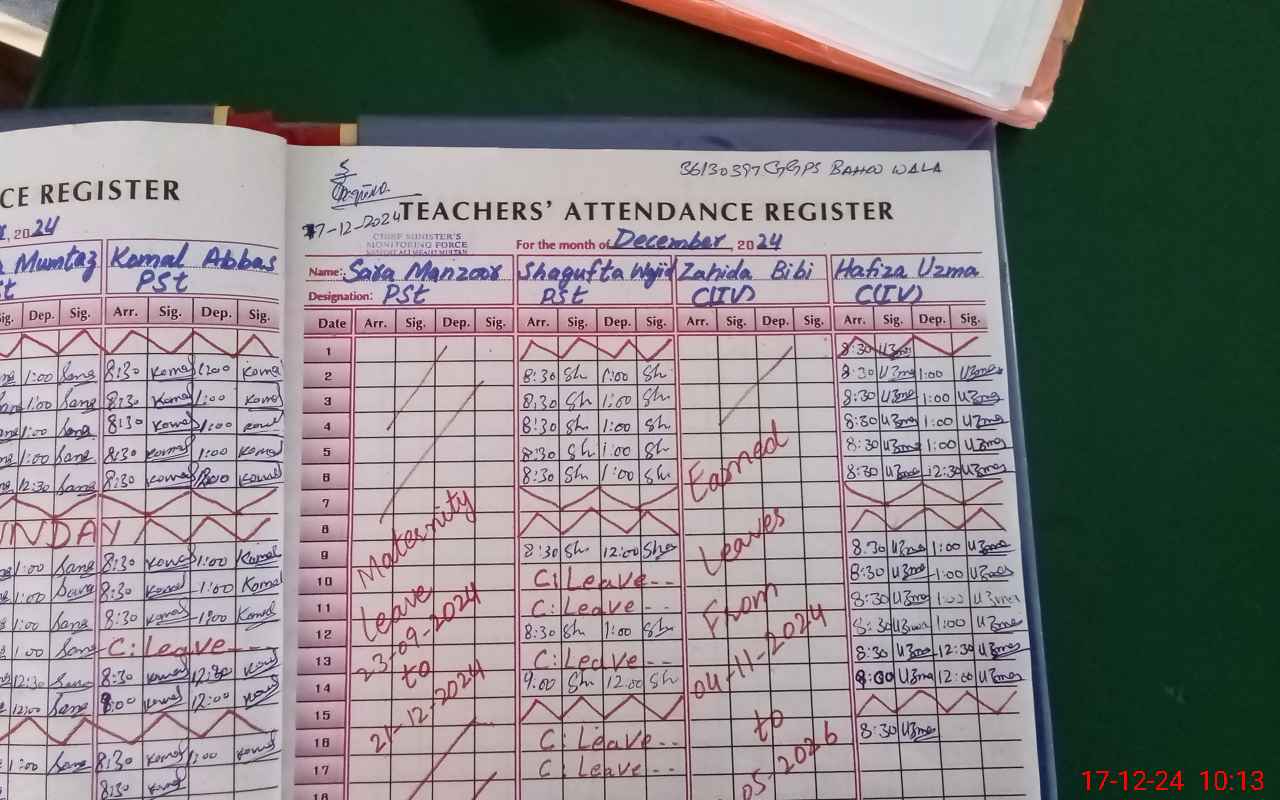 CE REGISTER
, 2024
Mumtaz Komal Abbas
St PSt
Sig. Dep. Sig. Arr. Sig. Dep. Sig.
1:00 Sana 8:30 Komal 1:00 Komal
1:00 Sana 8:30 Komal 1:00 Komal
1:00 Sana 8:30 Komal 1:00 Komal
1:00 Sana 8:30 Komal 1:00 Komal
12:30 Sana 8:30 Komal Komal
UNDAY
1:00 Sana 8:30 Komal 1:00 Komal
1:00 Sana 8:30 Komal 1:00 Komal
1:00 Sana 8:30 Komal 1:00 Komal
1:00 Sana C: Leave--
12:30 Sana 8:30 Komal 12:30 Komal
12:00 Sana 8:00 Komal 12:00 Komal
1:00 Sana 8:30 Komal 1:00 Komal
8:30 Komal
36130397 GGPS BAHOO WALA
17-12-2024
TEACHERS' ATTENDANCE REGISTER
CHIEF MINISTER'S
MONITORING FORCE
For the month of December, 2024
Name: Sara Manzoor Shagufta Wajid Zahida Bibi Hafiza Uzma
Designation: PSt PSt C(IV) C(IV)
Date Arr. Sig. Dep. Sig. Arr. Sig. Dep. Sig. Arr. Sig. Dep. Sig. Arr. Sig. Dep. Sig.
1 8:30 Uzma
2 8:30 Sh 1:00 Sh 8:30 Uzma 1:00 Uzma
3 8:30 Sh 1:00 Sh 8:30 Uzma 1:00 Uzma
4 8:30 Sh 1:00 Sh 8:30 Uzma 1:00 Uzma
5 8:30 Sh 1:00 Sh 8:30 Uzma 1:00 Uzma
6 8:30 Sh 1:00 Sh Earned 8:30 Uzma 12:30 Uzma
7
8 Maternity Leaves
9 8:30 Sh 12:00 Sh 8:30 Uzma 1:00 Uzma
10 C: Leave-- 8:30 Uzma 1:00 Uzma
11 Leave C: Leave-- From 8:30 Uzma 1:00 Uzma
12 23-09-2024 8:30 Sh 1:00 Sh 8:30 Uzma 1:00 Uzma
13 to C: Leave-- 04-11-2024 8:30 Uzma 12:30 Uzma
14 9:00 Sh 12:00 Sh 8:00 Uzma 12:00 Uzma
15 21-12-2024 to
16 C: Leave-- 8:30 Uzma
17 C: Leave-- 05-2026
18
17-12-24 10:13